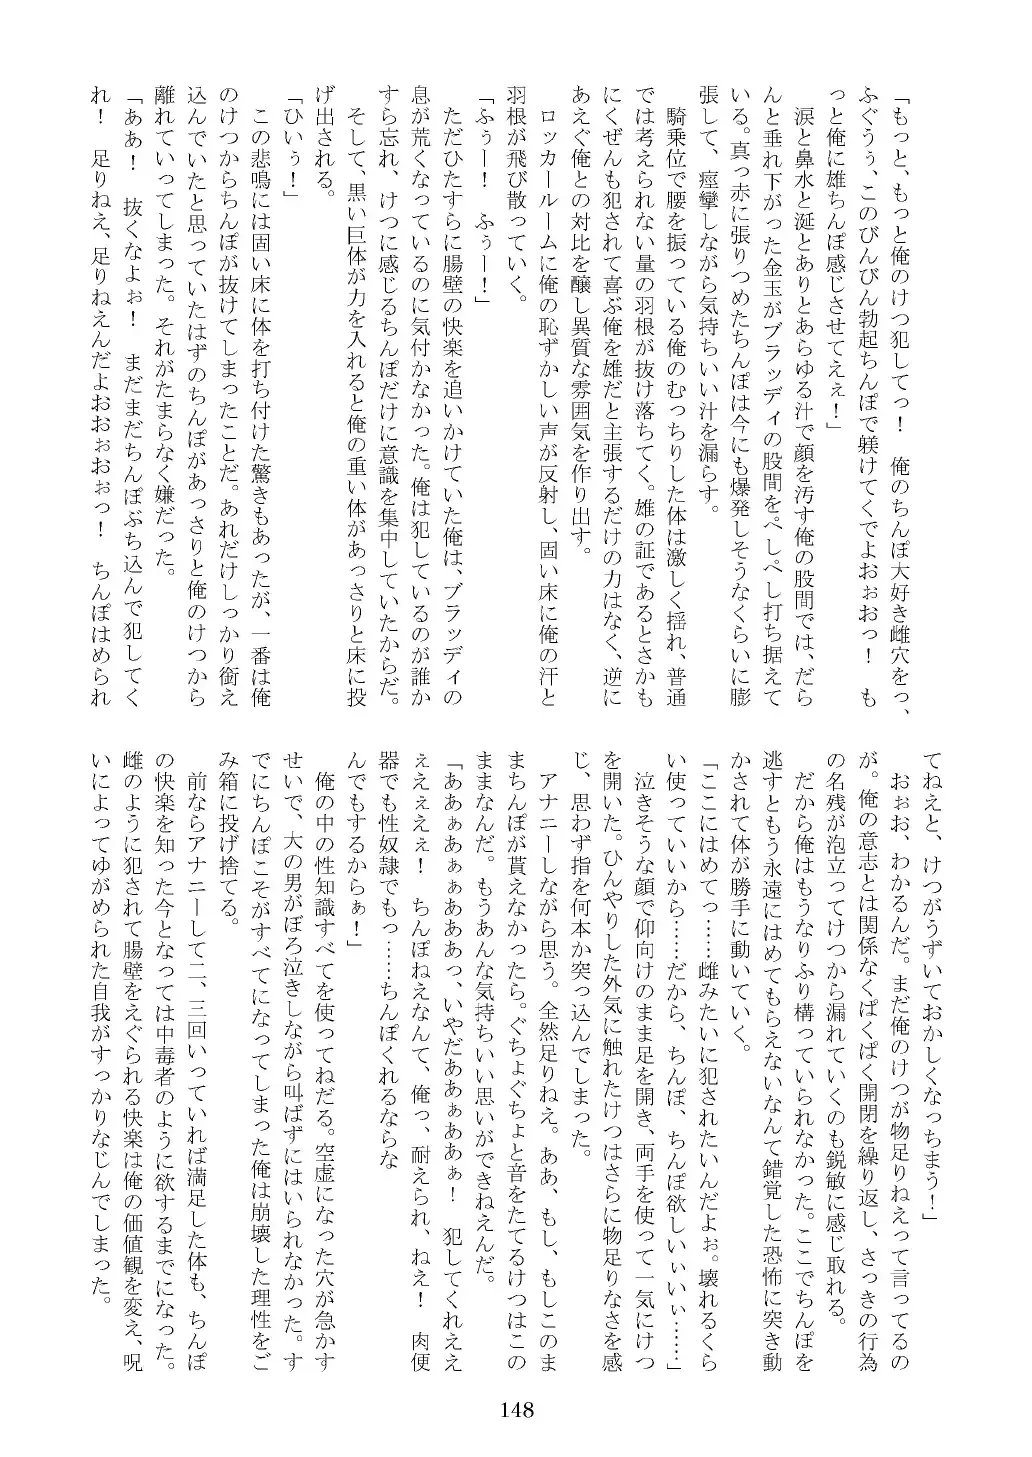 「もっと、もっと俺のけつ犯してっ！　俺のちんぽ大好き雌穴をっ、
ふぐうぅ、このびんびん勃起ちんぽで躾けてくでよおぉおっ！　も
っと俺に雄ちんぽ感じさせてえぇ！」
　涙と鼻水と涎とありとあらゆる汁で顔を汚す俺の股間では、だら
んと垂れ下がった金玉がブラッディの股間をぺしぺし打ち据えて
いる。真っ赤に張りつめたちんぽは今にも爆発しそうなくらいに膨
張して、痙攣しながら気持ちいい汁を漏らす。
　騎乗位で腰を振っている俺のむっちりした体は激しく揺れ、普通
では考えられない量の羽根が抜け落ちてく。雄の証であるとさかも
にくぜんも犯されて喜ぶ俺を雄だと主張するだけの力はなく、逆に
あえぐ俺との対比を醸し異質な雰囲気を作り出す。
　ロッカールームに俺の恥ずかしい声が反射し、固い床に俺の汗と
羽根が飛び散っていく。
「ふぅー！　ふぅー！」
　ただひたすらに腸壁の快楽を追いかけていた俺は、ブラッディの
息が荒くなっているのに気付かなかった。俺は犯しているのが誰か
すら忘れ、けつに感じるちんぽだけに意識を集中していたからだ。
　そして、黒い巨体が力を入れると俺の重い体があっさりと床に投
げ出される。
「ひいぅ！」
　この悲鳴には固い床に体を打ち付けた驚きもあったが、一番は俺
のけつからちんぽが抜けてしまったことだ。あれだけしっかり銜え
込んでいたと思っていたはずのちんぽがあっさりと俺のけつから
離れていってしまった。それがたまらなく嫌だった。
「ああ！　抜くなよぉ！　まだまだちんぽぶち込んで犯してく
れ！　足りねえ、足りねえんだよおおぉおぉっ！　ちんぽはめられ
てねえと、けつがうずいておかしくなっちまう！」
　おぉお、わかるんだ。まだ俺のけつが物足りねえって言ってるの
が。俺の意志とは関係なくぱくぱく開閉を繰り返し、さっきの行為
の名残が泡立ってけつから漏れていくのも鋭敏に感じ取れる。
　だから俺はもうなりふり構っていられなかった。ここでちんぽを
逃すともう永遠にはめてもらえないなんて錯覚した恐怖に突き動
かされて体が勝手に動いていく。
「ここにはめてっ……雌みたいに犯されたいんだよぉ。壊れるくら
い使っていいから……だから、ちんぽ、ちんぽ欲しいぃいぃ……」
　泣きそうな顔で仰向けのまま足を開き、両手を使って一気にけつ
を開いた。ひんやりした外気に触れたけつはさらに物足りなさを感
じ、思わず指を何本か突っ込んでしまった。
　アナニーしながら思う。全然足りねえ。ああ、もし、もしこのま
まちんぽが貰えなかったら。ぐちょぐちょと音をたてるけつはこの
ままなんだ。もうあんな気持ちいい思いができねえんだ。
「ああぁあぁぁあああっ、いやだああぁああぁ！　犯してくれええ
ええぇえぇ！　ちんぽねえなんて、俺っ、耐えられ、ねえ！　肉便
器でも性奴隷でもっ……ちんぽくれるならな
んでもするからぁ！」
　俺の中の性知識すべてを使ってねだる。空虚になった穴が急かす
せいで、大の男がぼろ泣きしながら叫ばずにはいられなかった。す
でにちんぽこそがすべてになってしまった俺は崩壊した理性をご
み箱に投げ捨てる。
　前ならアナニーして二、三回いっていれば満足した体も、ちんぽ
の快楽を知った今となっては中毒者のように欲するまでになった。
雌のように犯されて腸壁をえぐられる快楽は俺の価値観を変え、呪
いによってゆがめられた自我がすっかりなじんでしまった。
148